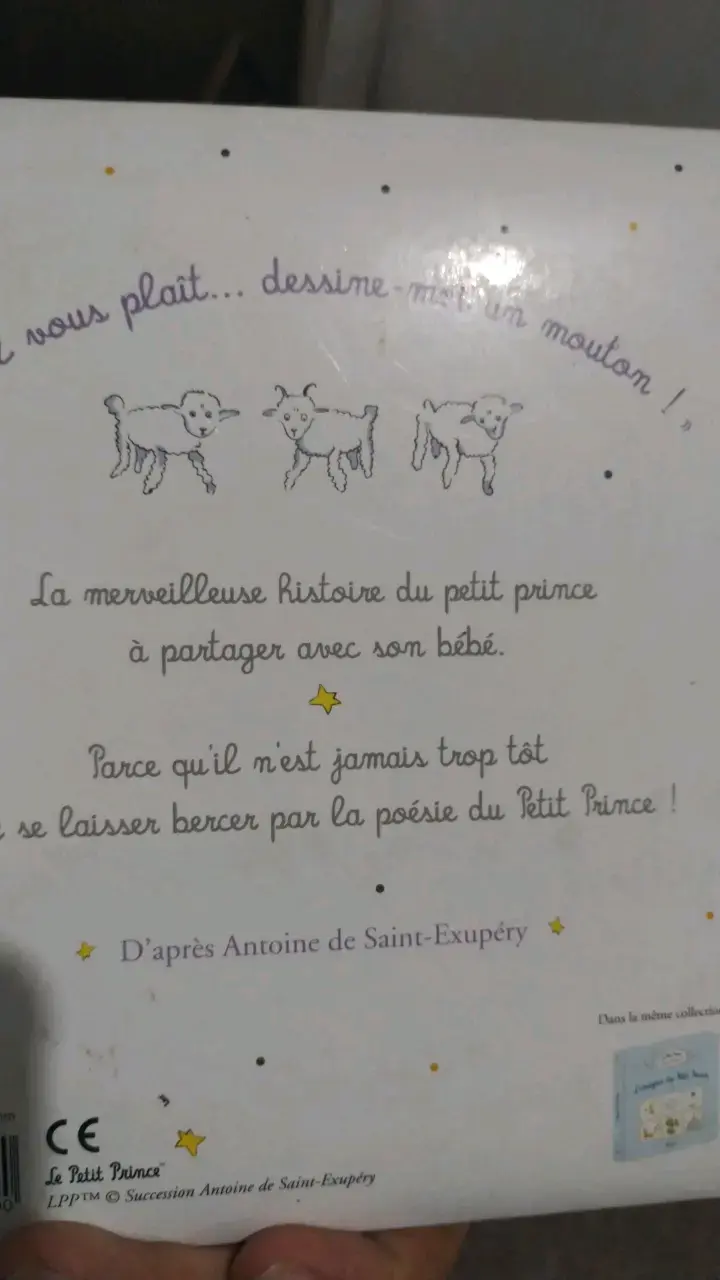 vous plaît... dessine-moi un mouton ! »
La merveilleuse histoire du petit prince
à partager avec son bébé.
Parce qu'il n'est jamais trop tôt
se laisser bercer par la poésie du Petit Prince !
D'après Antoine de Saint-Exupéry
Dans la même collection
CE
Le Petit Prince™
LPP™ © Succession Antoine de Saint-Exupéry